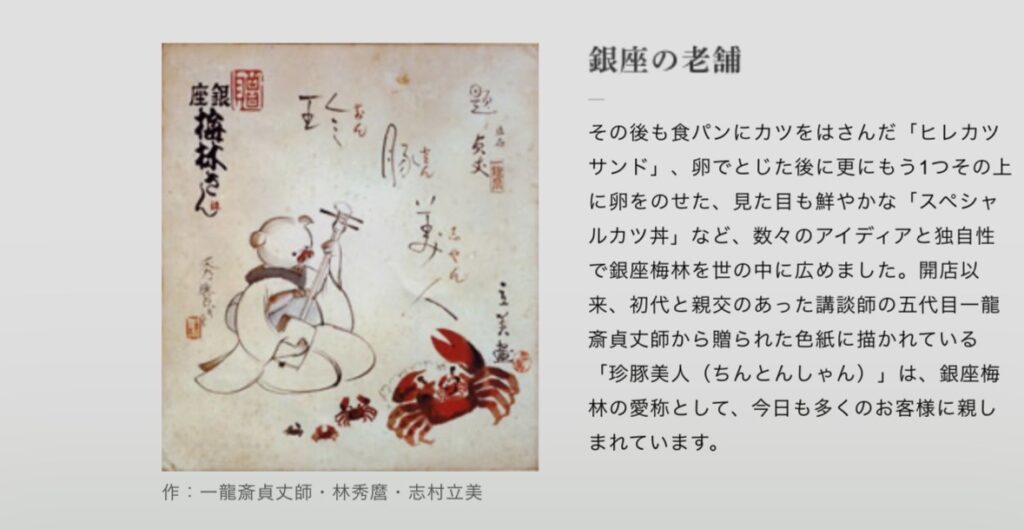 銀座の老舗
その後も食パンにカツをはさんだ「ヒレカツ
サンド」、卵でとじた後に更にもう1つその上
に卵をのせた、見た目も鮮やかな「スペシャ
ルカツ丼」など、数々のアイディアと独自性
で銀座梅林を世の中に広めました。開店以
来、初代と親交のあった講談師の五代目一龍
斎貞丈師から贈られた色紙に描かれている
「珍豚美人（ちんとんしゃん）」は、銀座梅
林の愛称として、今日も多くのお客様に親し
まれています。
題
貞丈
豚
とん
美人
しゃん
立美画
銀座
梅林さん
作：一龍斎貞丈師・林秀麿・志村立美